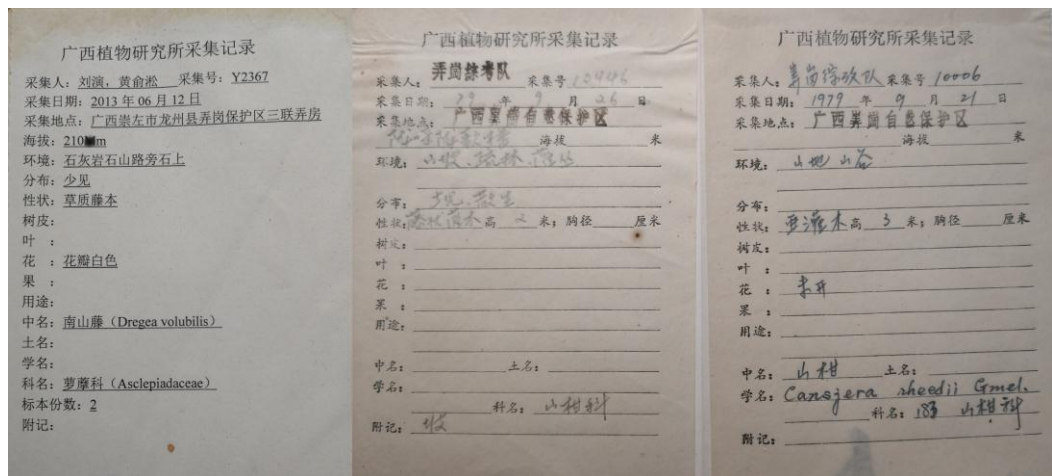 广西植物研究所采集记录
采集人：刘演，黄俞淞 采集号：Y2367
采集日期：2013 年 06 月 12 日
采集地点：广西崇左市龙州县弄岗保护区三联弄房
海拔：210m
环境：石灰岩石山路旁石上
分布：少见
性状：草质藤本
树皮：
叶 ：
花 ：花瓣白色
果 ：
用途：
中名：南山藤（Dregea volubilis）
土名：
学名：
科名：萝藦科（Asclepiadaceae）
标本份数：2
附记：
广西植物研究所采集记录
采集人：弄岗综考队 采集号 10446
采集日期：79 年 9 月 26 日
采集地点：广西弄岗自然保护区
海拔 米
环境：山坡、疏林、
分布：散生
性状：藤状灌木高 2 米；胸径 厘米
树皮：
叶 ：
花 ：
果 ：
用途：
中名： 土名：
学名：
科名：山柑科
附记：
广西植物研究所采集记录
采集人：弄岗综考队 采集号 10006
采集日期：1979 年 9 月 21 日
采集地点：广西弄岗自然保护区
海拔 米
环境：山地 山谷
分布：
性状：亚灌木高 3 米；胸径 厘米
树皮：
叶 ：
花 ：未开
果 ：
用途：
中名：山柑 土名：
学名：Cansjera rheedii Gmel.
科名：183 山柑科
附记：